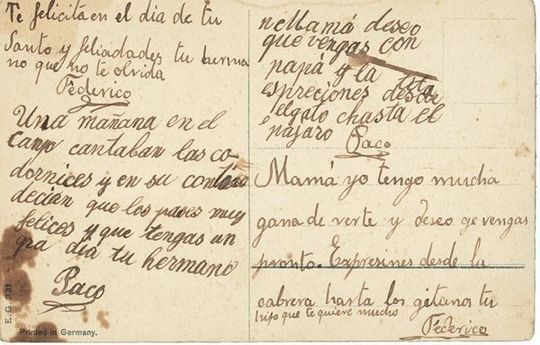 Te felicita en el dia de tu
Santo y feliadades tu herma
no que no te olvida
Federico
Una mañana en el
canpo cantaban las co-
dornices y en su
decian que los pases muy
felices y que tengas un
gra dia tu hermano
Paco
E. G. 331
Printed in Germany.
Mamá deseo
que vengas con
papá y la
espreciones desde
el gato chasta el
pajaro Paco
Mamá yo tengo mucha
gana de verte y deseo qe vengas
pronto. Expresines desde la
cabrera hasta los gitanos tu
hijo que te quiere mucho
Federico